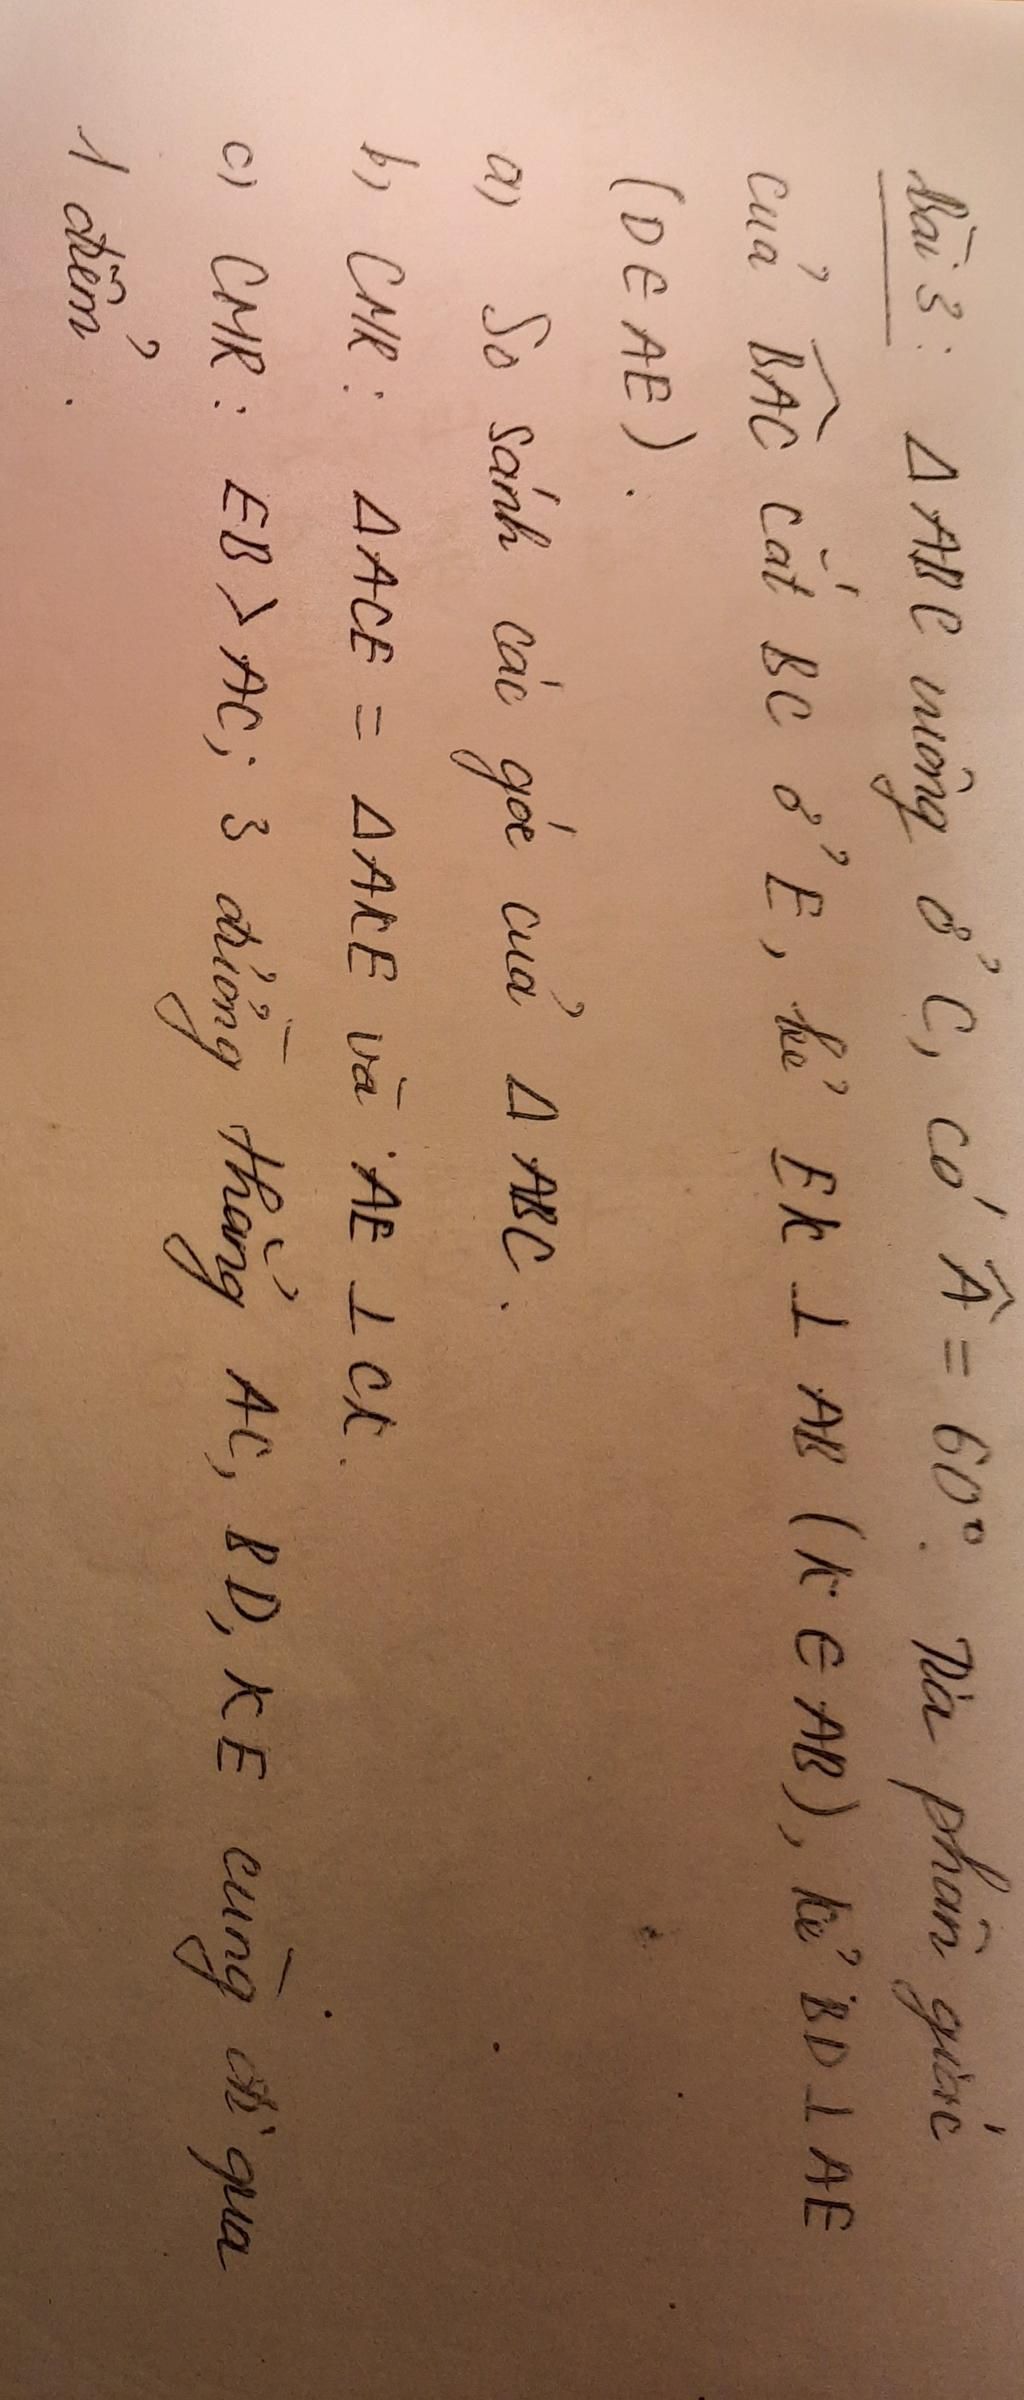 Bài 3: Δ ABC vuông ở C, có Â = 60°. Tia phân giác
của B̂AC cắt BC ở E, kẻ EK ⊥ AB (K ∈ AB), kẻ BD ⊥ AE
(D ∈ AE).
a) So sánh các góc của Δ ABC.
b) CMR: ΔACE = ΔAKE và AE ⊥ CK.
c) CMR: EB > AC; 3 đường thẳng AC, BD, KE cùng đi qua
1 điểm.